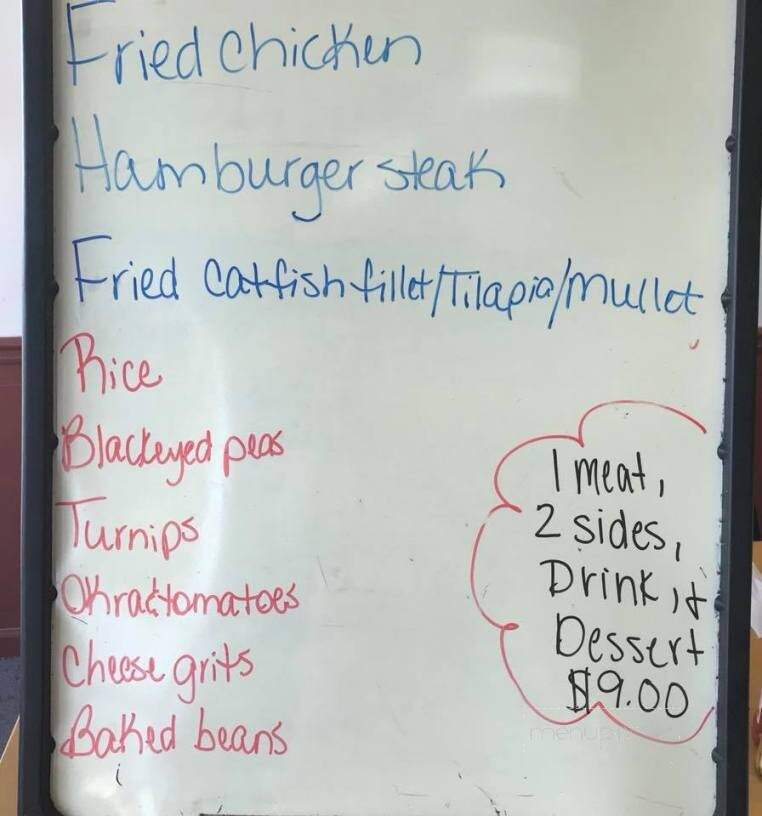 Fried chicken
Hamburger steak
Fried Catfish fillet/Tilapia/Mullet
Rice
Blackeyed peas
Turnips
Okra&tomatoes
Cheese grits
Baked beans
1 meat,
2 sides,
Drink, &
Dessert
$9.00